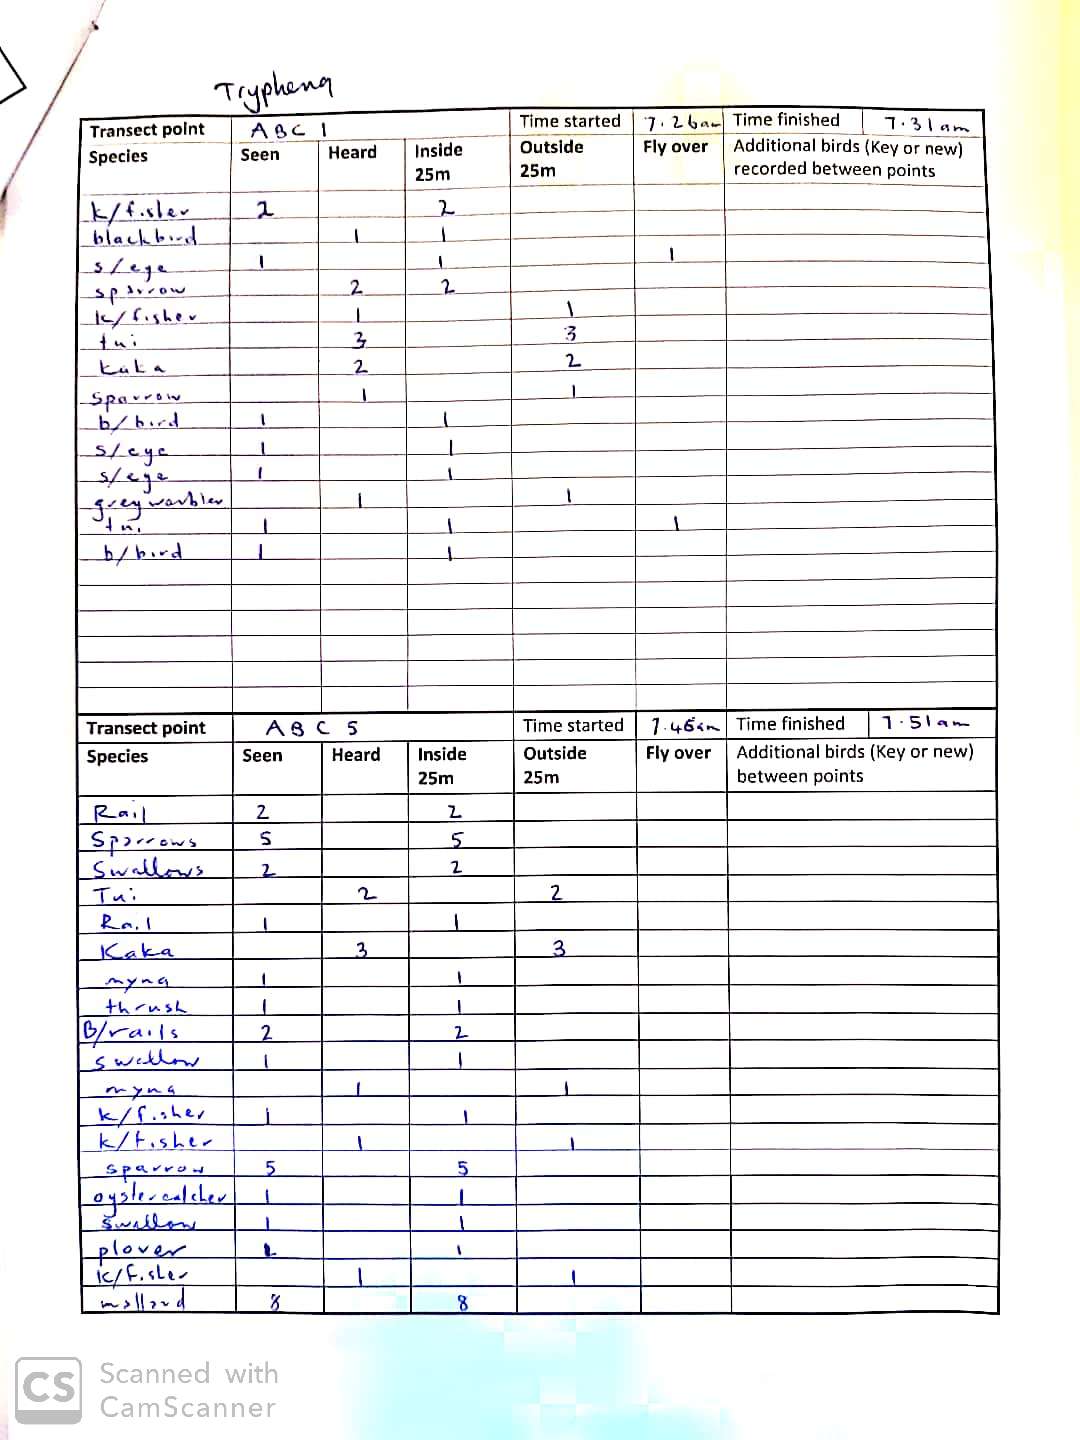 Tryphena
Transect point ABC 1 Time started 7.26am Time finished 7.31am
Species Seen Heard Inside 25m Outside 25m Fly over Additional birds (Key or new) recorded between points
k/fisher 2 2
blackbird 1 1
s/eye 1 1 1
sparrow 2 2
k/fisher 1 1
tui 3 3
kaka 2 2
Sparrow 1 1
b/bird 1 1
s/eye 1 1
s/eye 1 1
grey warbler 1 1
tui 1 1 1
b/bird 1 1
Transect point ABC 5 Time started 7.46am Time finished 7.51am
Species Seen Heard Inside 25m Outside 25m Fly over Additional birds (Key or new) between points
Rail 2 2
Sparrows 5 5
Swallows 2 2
Tui 2 2
Rail 1 1
Kaka 3 3
myna 1 1
thrush 1 1
B/rails 2 2
swallow 1 1
myna 1 1
k/fisher 1 1
k/fisher 1 1
sparrow 5 5
oystercatcher 1 1
swallow 1 1
plover 1 1
k/fisher 1 1
mallard 8 8
CS Scanned with
CamScanner